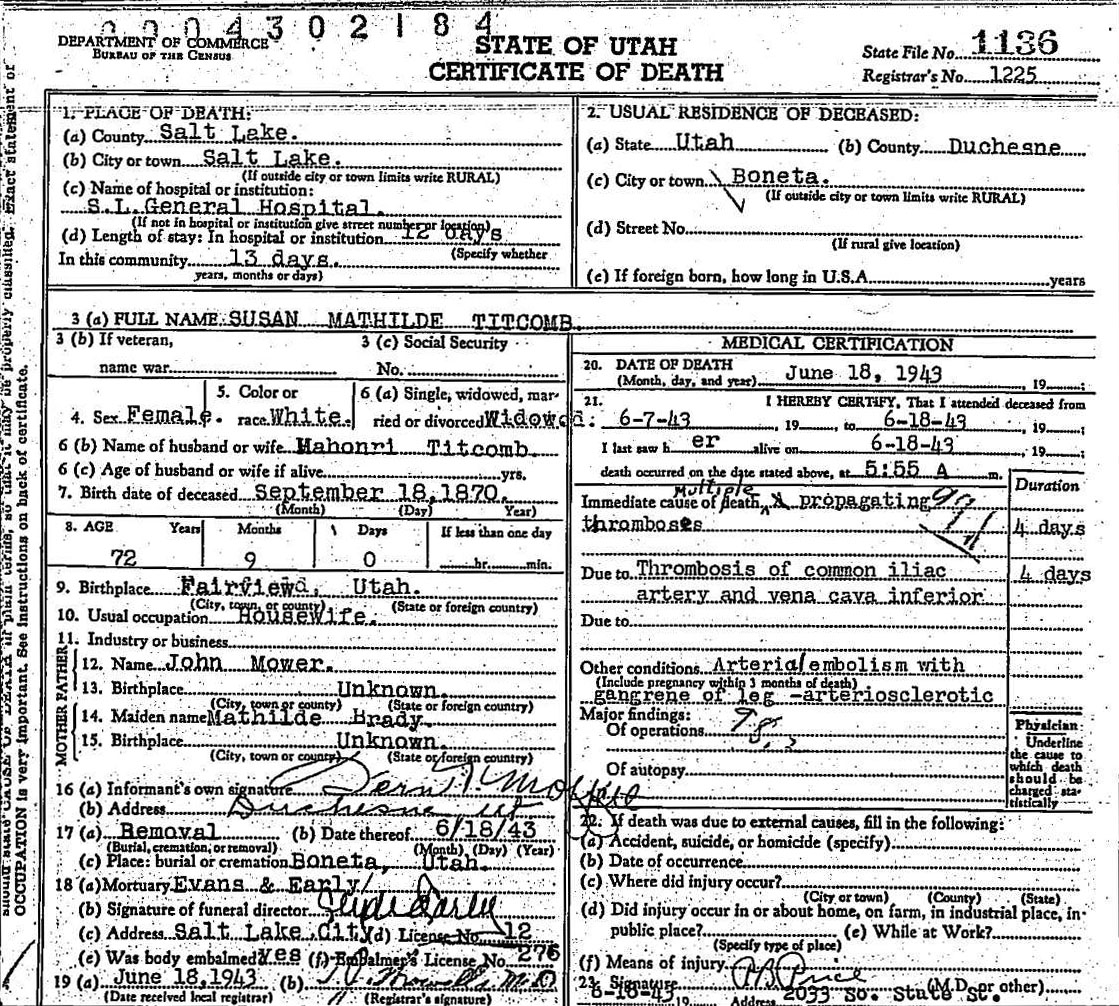 0004302184
DEPARTMENT OF COMMERCE
BUREAU OF THE CENSUS
STATE OF UTAH
CERTIFICATE OF DEATH
State File No. 1136
Registrar's No. 1225
1. PLACE OF DEATH:
(a) County Salt Lake.
(b) City or town Salt Lake.
(If outside city or town limits write RURAL)
(c) Name of hospital or institution:
S.L. General Hospital.
(If not in hospital or institution give street number or location)
(d) Length of stay: In hospital or institution 12 days
(Specify whether
In this community 13 days.
years, months or days)
2. USUAL RESIDENCE OF DECEASED:
(a) State Utah (b) County Duchesne
(c) City or town Boneta.
(If outside city or town limits write RURAL)
(d) Street No.
(If rural give location)
(e) If foreign born, how long in U.S.A. years
3 (a) FULL NAME SUSAN MATHILDE TITCOMB.
3 (b) If veteran,
name war
3 (c) Social Security
No.
4. Sex Female.
5. Color or
race White.
6 (a) Single, widowed, mar-
ried or divorced Widowed.
6 (b) Name of husband or wife Mahonri Titcomb.
6 (c) Age of husband or wife if alive yrs.
7. Birth date of deceased September 18, 1870.
(Month) (Day) Year)
8. AGE Years Months Days If less than one day
72 9 0 hr. min.
9. Birthplace Fairview, Utah.
(City, town, or county) (State or foreign country)
10. Usual occupation Housewife.
11. Industry or business
FATHER
12. Name John Mower.
13. Birthplace Unknown.
(City, town or county) (State or foreign country)
MOTHER
14. Maiden name Mathilde Brady.
15. Birthplace Unknown.
(City, town or county) (State or foreign country)
16 (a) Informant's own signature
(b) Address Duchesne Ut
17 (a) Removal (b) Date thereof 6/18/43
(Burial, cremation, or removal) (Month) (Day) (Year)
(c) Place: burial or cremation Boneta, Utah.
18 (a) Mortuary Evans & Early
(b) Signature of funeral director Clyde Early
(c) Address Salt Lake City (d) License No. 12
(e) Was body embalmed? Yes (f) Embalmer's License No. 276
19 (a) June 18, 1943 (b) M.D.
(Date received local registrar) (Registrar's signature)
MEDICAL CERTIFICATION
20. DATE OF DEATH
(Month, day, and year) June 18, 1943, 19
21. I HEREBY CERTIFY, That I attended deceased from
6-7-43, 19 to 6-18-43, 19
I last saw h er alive on 6-18-43, 19
death occurred on the date stated above, at 5:55 A m.
Duration
Immediate cause of death Multiple propagating
thromboses 4 days
Due to Thrombosis of common iliac 4 days
artery and vena cava inferior
Due to
Other conditions Arterial embolism with
(Include pregnancy within 3 months of death)
gangrene of leg -arteriosclerotic
Major findings:
Of operations
Of autopsy
Physician
Underline
the cause to
which death
should be
charged sta-
tistically
22. If death was due to external causes, fill in the following:
(a) Accident, suicide, or homicide (specify)
(b) Date of occurrence
(c) Where did injury occur?
(City or town) (County) (State)
(d) Did injury occur in or about home, on farm, in industrial place, in-
public place? (e) While at Work?
(Specify type of place)
(f) Means of injury
23. Signature Price (M.D. or other)
6-18-43 19 Address 2033 So. State St.
OCCUPATION is very important. See instructions on back of certificate.